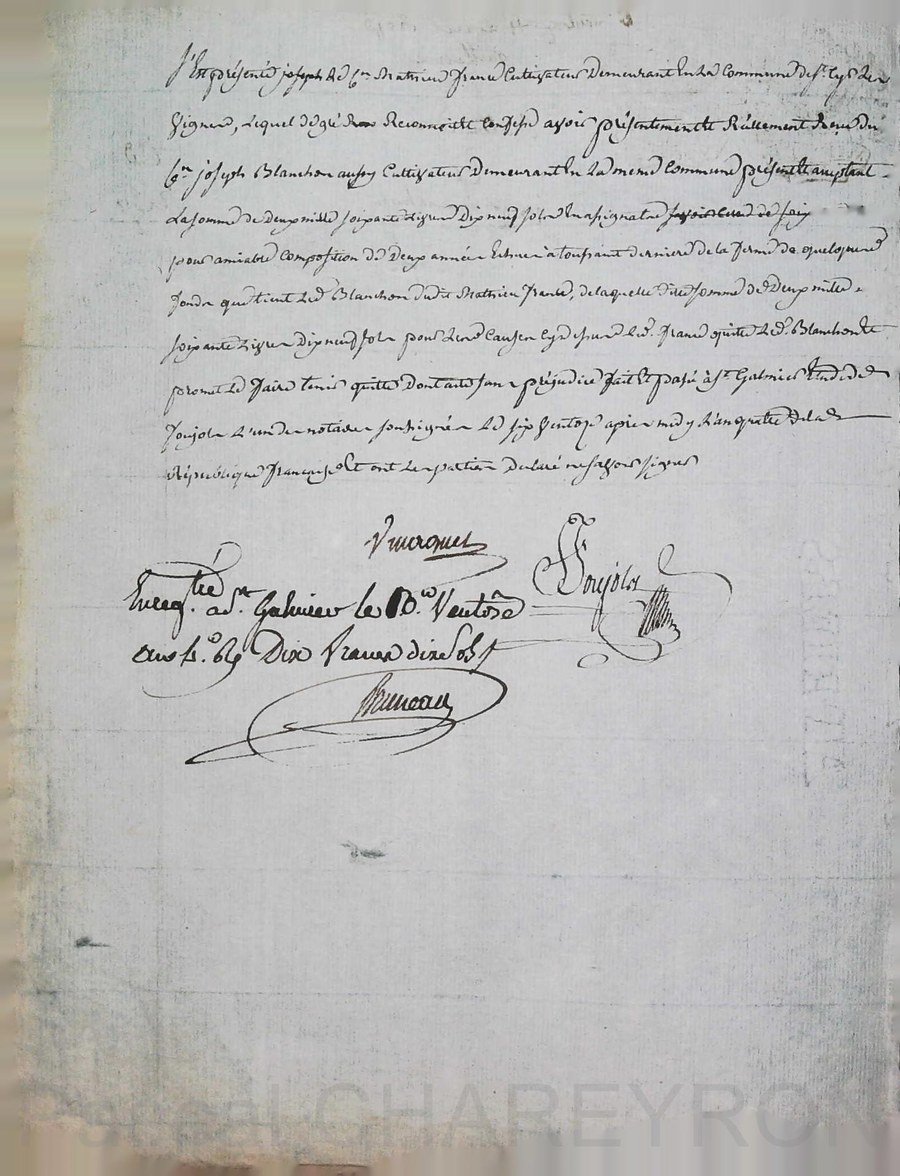 S'Est présenté joseph led. Cen. Mathieu france Cultivateur Demeurant En La Commune de St.
Vigner, Lequel de gré Reconnoitre Confesse avoir présentement Et Réellement Reçu du
Cen. joseph Blanchon aussy Cultivateur Demeurant En La meme Commune présent acceptant
La somme de Deux mille soixante Livres Dix neuf sols En assignats
pour amiable Composition de Deux années Echues à toussaint derniere de la ferme de quelques
fonds que tient Led. Blanchon dudit Mathieu france, de laquelle dite somme de Deux mille
soixante Livres Dix neuf sols pour Led. france quitte Led. Blanchon Et
promet Le faire tenir quitte Dont acte sans préjudice fait Et passé à St. Galmier Etude de
Poujols L'un des notaires soussignés Le six Ventose après midy L'an quatre de la
République française Et ont Les parties Declaré ne savoir signer
Poujols
Enregtré. a St. Galmier le Ventose
an 4.e Dix francs dix sols
Bruneau
Pascal CHAREYRON